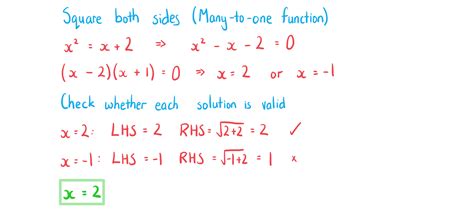 Square both sides (Many-to-one function)
x² = x + 2 ⇒ x² - x - 2 = 0
(x - 2)(x + 1) = 0 ⇒ x = 2 or x = -1
Check whether each solution is valid
x = 2: LHS = 2 RHS = √2+2 = 2 ✓
x = -1: LHS = -1 RHS = √-1+2 = 1 ×
x = 2